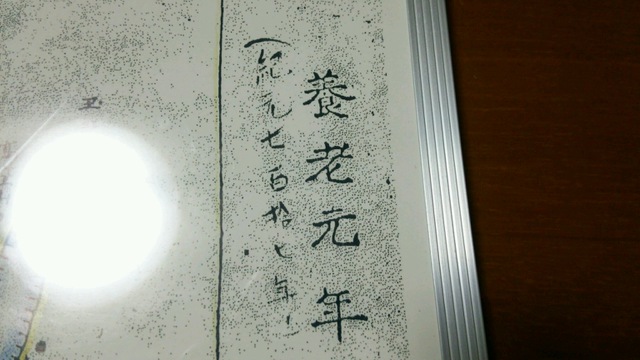 養老元年
(紀元七百拾七年)